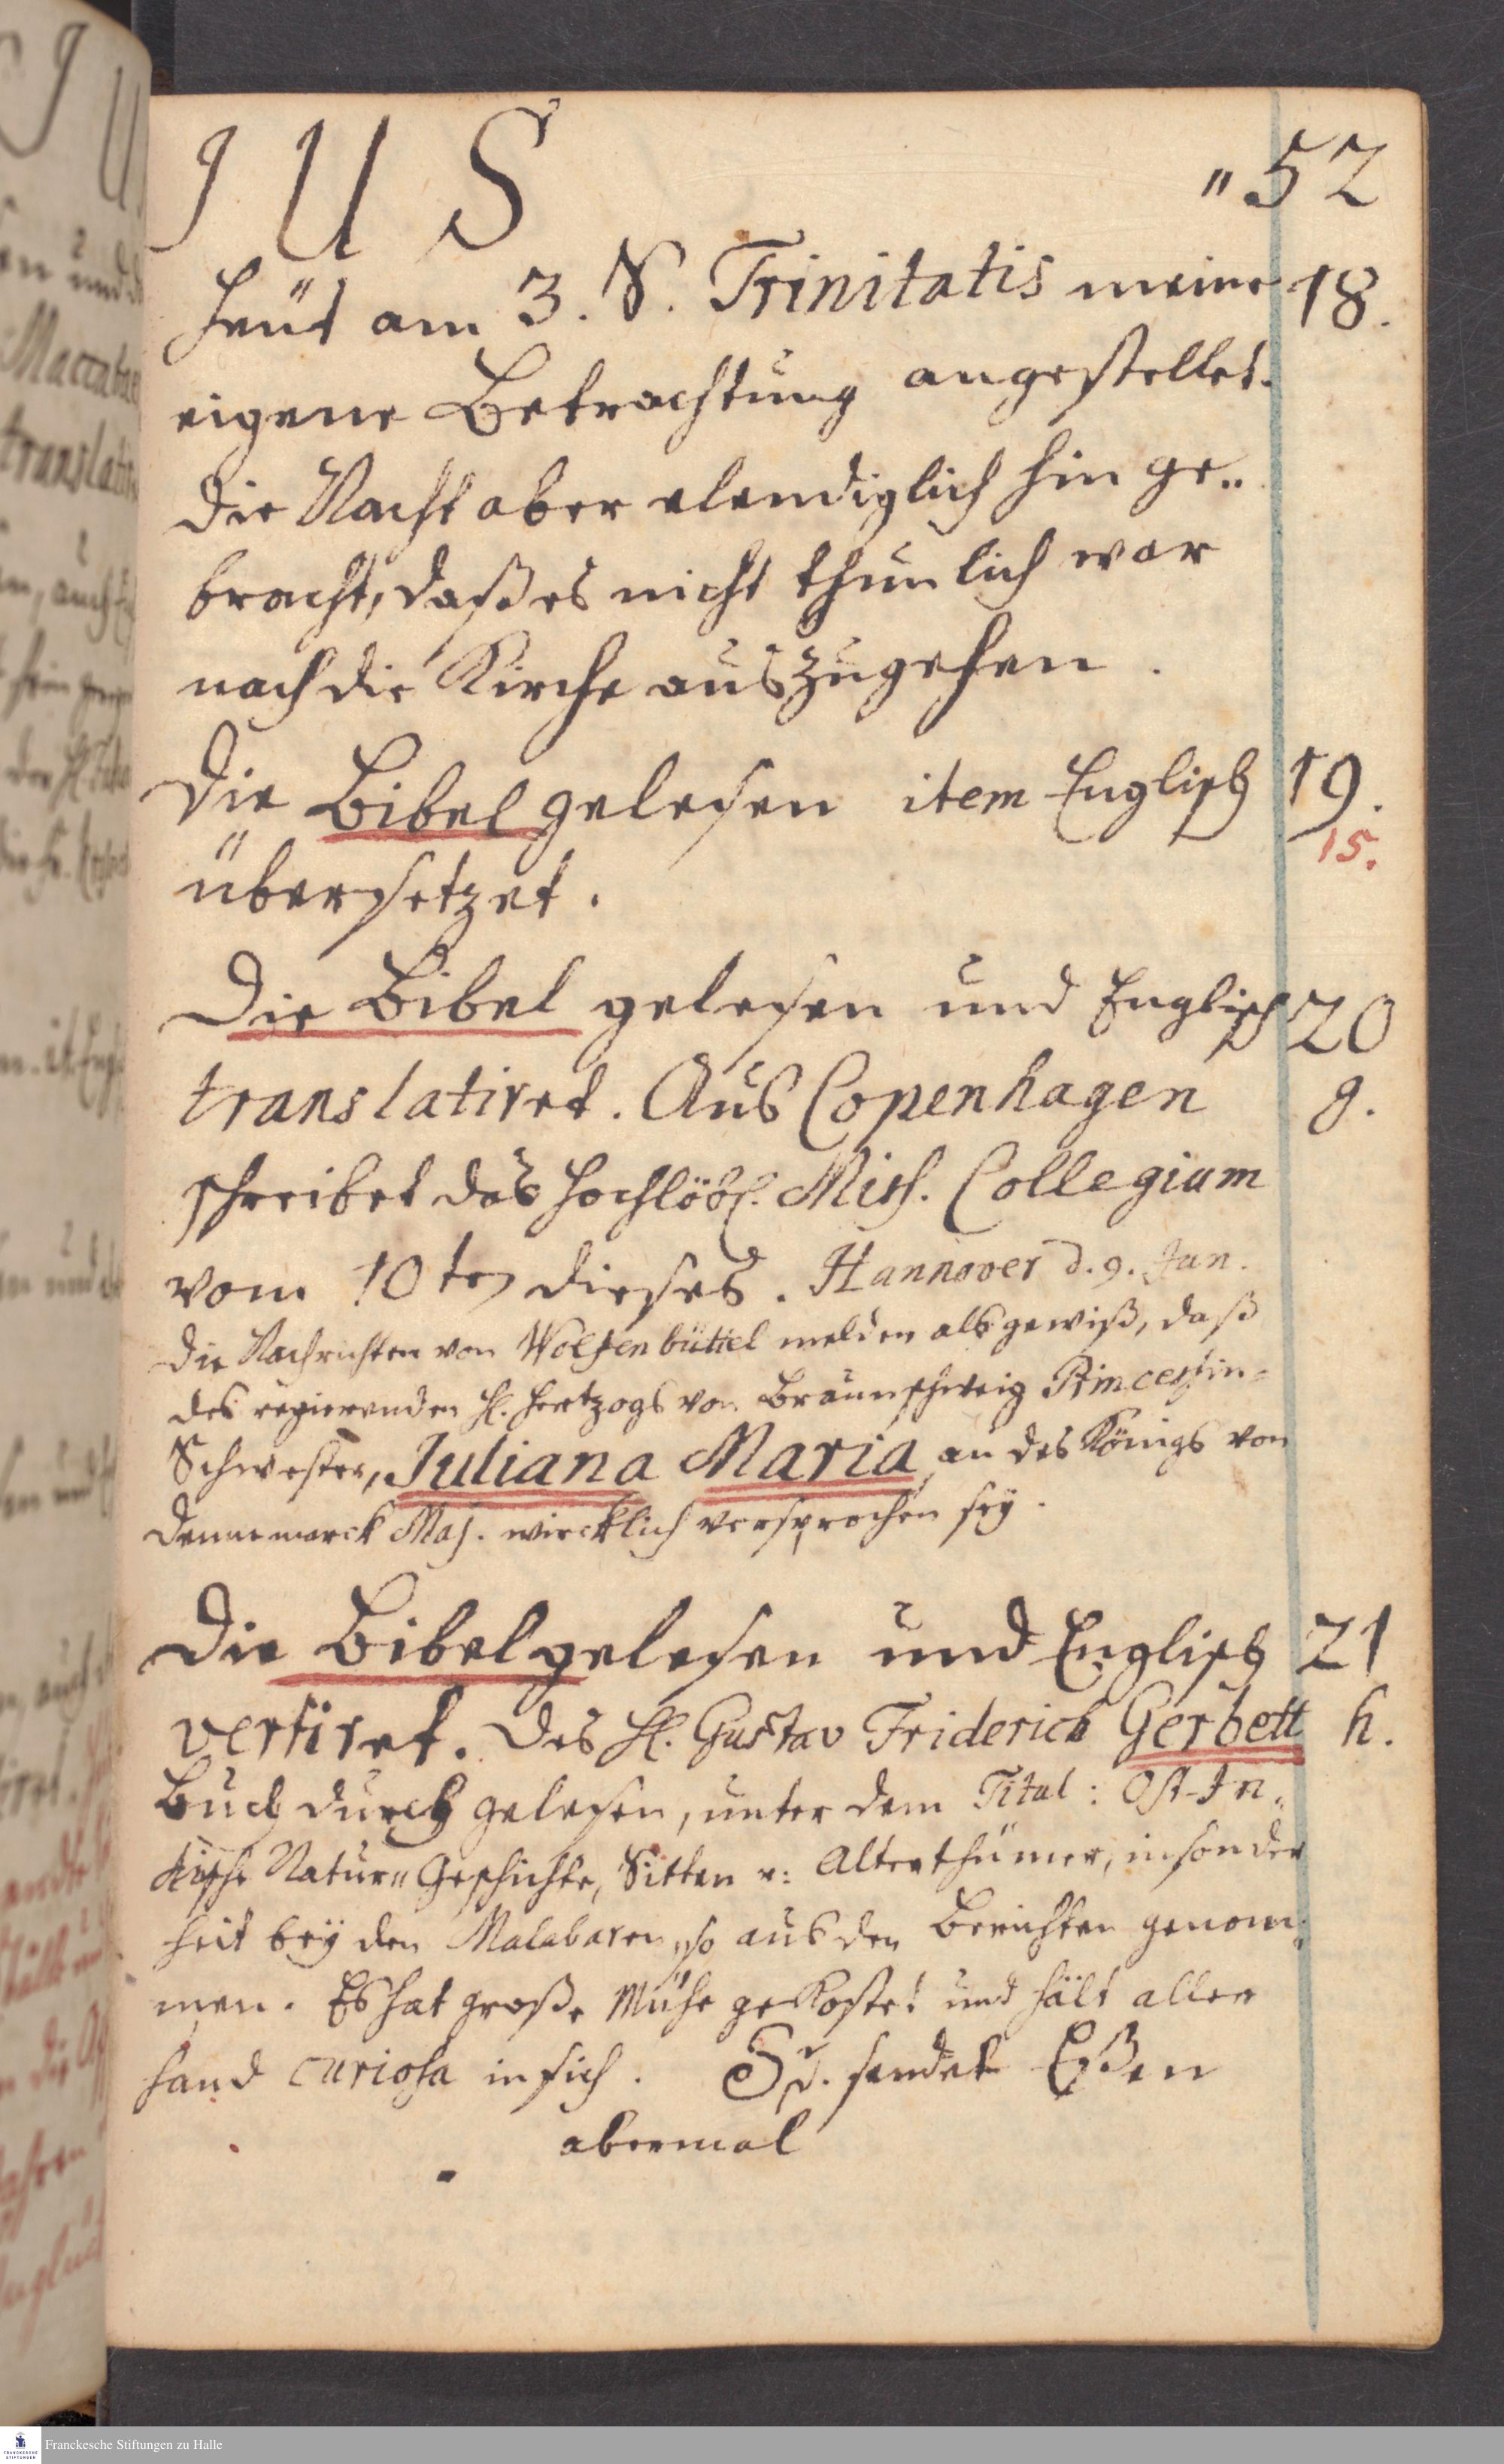 JUS "52
Heüt am 3. S. Trinitatis meine 18.
eigene Betrachtung angestellet.
Die Nacht aber elendiglich hin ge„
bracht, daß es nicht thunlich war
nach die Kirche auszugehen.
Die Bibel gelesen item Englisch 19.
15.
übersetzet.
Die Bibel gelesen und Englisch 20
translatiret. Aus Copenhagen g.
schreibet das hochlöbl. Miss. Collegium
vom 10ten dieses. Hannover d. 9. Jun.
Die Nachrichten von Wolfenbüttel melden als gewiß, daß
des regierenden H. Hertzogs von Braunschweig Princessin=
Schwester, Juliana Maria an des Königs von
Dennemarck Maj. wircklich versprochen seÿ.
Die Bibel gelesen und Englisch 21
vertiret. Des H. Gustav Friderich Gerbett h.
Buch durch gelesen, unter dem Titul: Ost-In„
dische Natur„Geschichte, Sitten u: Alterthümer, insonder
heit beÿ den Malabaren, so aus den Berichten genom„
men. Es hat große Mühe gekostet und hält aller
hand curiosa in sich. sendet Eßen
abermal
Franckesche Stiftungen zu Halle
FRANCKESCHE STIFTUNGEN